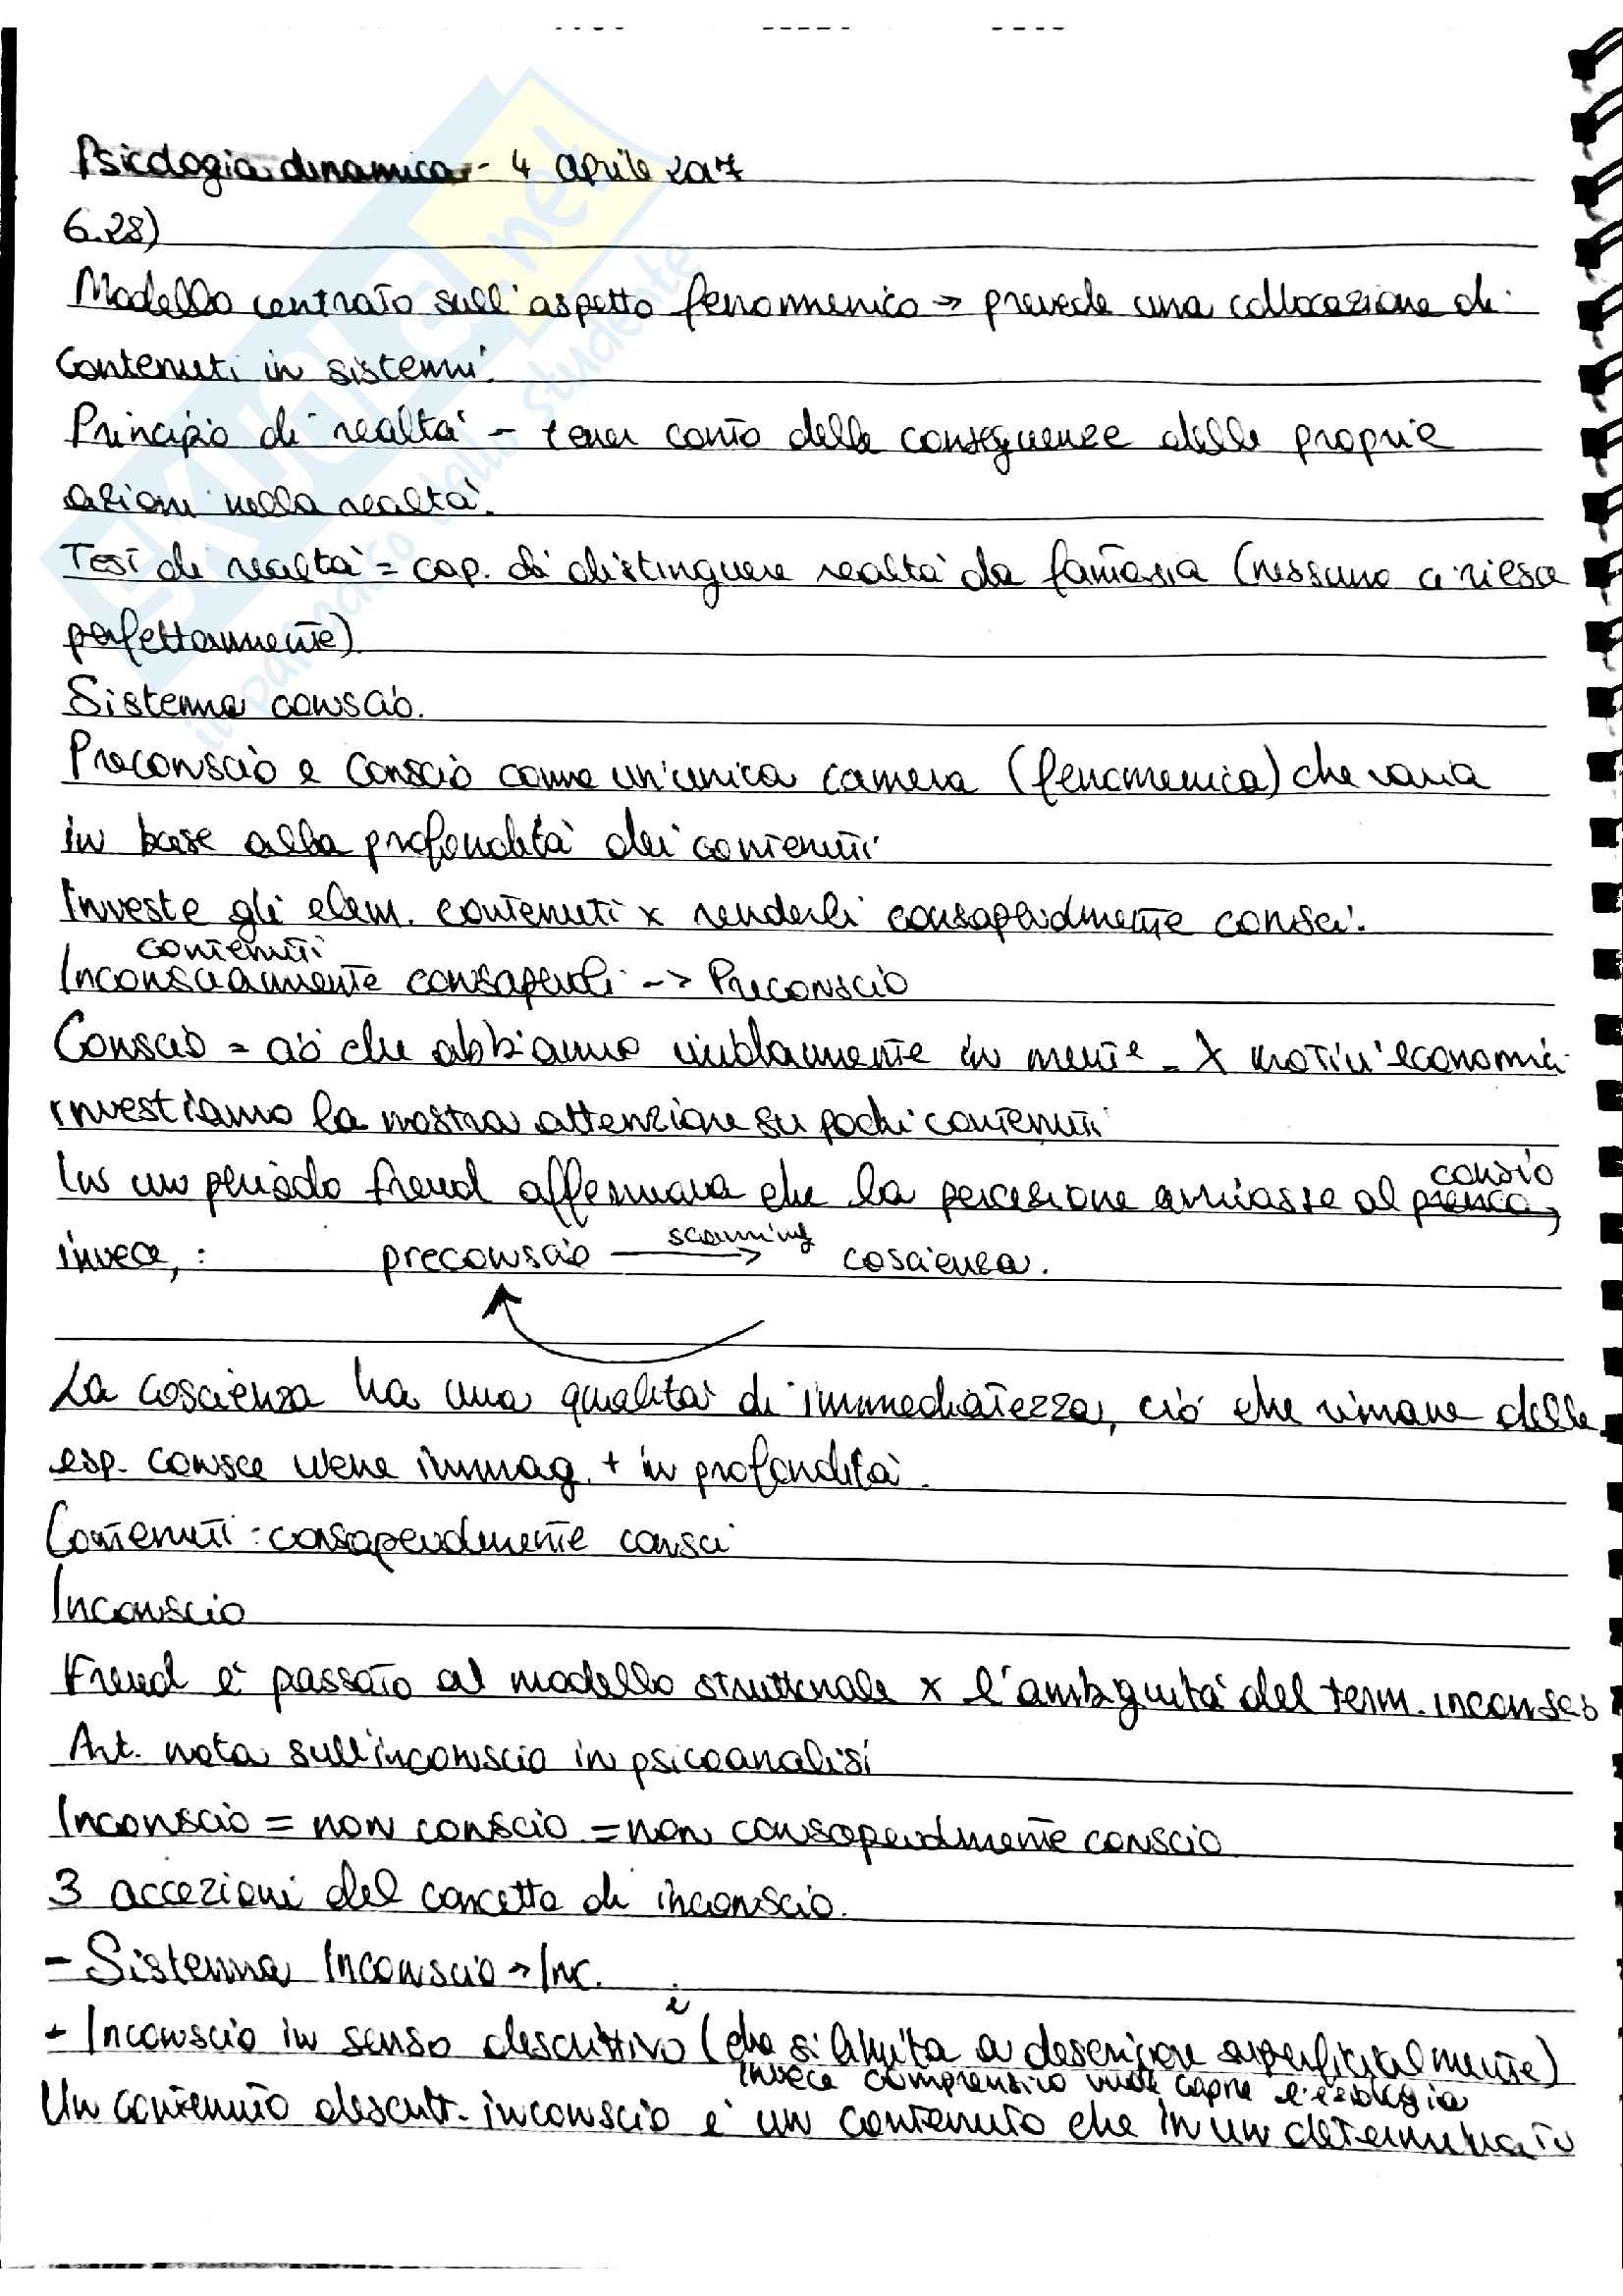 Psicologia dinamica - 4 aprile 2017
6.28)
Modello centrato sull'aspetto fenommenico → prevede una collocazione di
contenuti in sistemi.
Principio di realtà - tener conto delle conseguenze delle proprie
azioni nella realtà.
Test di realtà = cap. di distinguere realtà da fantasia (nessuno ci riesce
perfettamente)
Sistema conscio.
Preconscio e Conscio come un'unica camera (fenomenica) che varia
in base alla profondità dei contenuti
Investe gli elem. contenuti x renderli consapevolmente consci.
contenuti
Inconsciamente consapevoli -> Preconscio
Conscio = ciò che abbiamo in mente - X motivi economici
investiamo la nostra attenzione su pochi contenuti
In un periodo Freud affermava che la percezione arrivasse al conscio
invece, : preconscio scanning → coscienza.
La coscienza ha una qualità di immediatezza, ciò che rimane delle
esp. consce viene immag. + in profondità.
Contenuti: consapevolmente consci
Inconscio
Freud è passato al modello strutturale x l'ambiguità del term. inconscio
Art. nota sull'inconscio in psicoanalisi
Inconscio = non conscio = non consapevolmente conscio
3 accezioni del concetto di inconscio.
- Sistema Inconscio → Inc.
- Inconscio in senso descrittivo è (che si limita a descrivere superficialmente)
invece comprensivo vuole capire l'eziologia
Un contenuto descritt. inconscio è un contenuto che in un determinato
SKUOLA.net
il paradiso dello studente